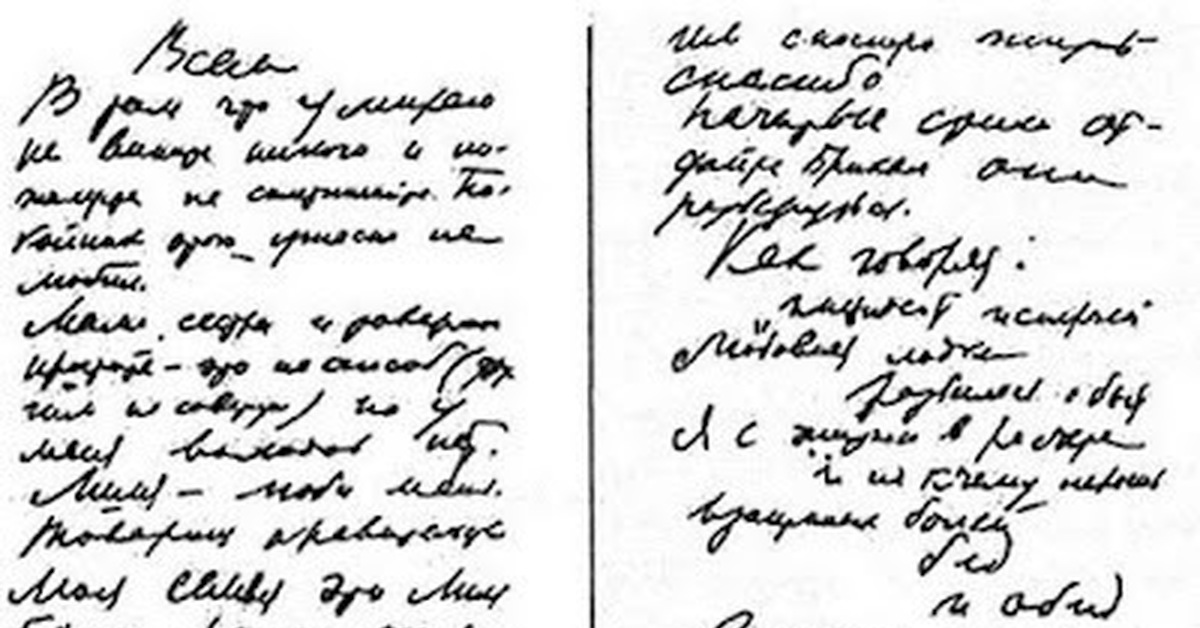 Всем
В том что умираю
не вините никого и по-
жалуйста не сплетничайте. По-
койник этого ужасно не
любил.
Мама, сестры и товарищи
простите - это не способ (дру
гим не советую) но у
меня выходов нет.
Лиля - люби меня.
Товарищ правительство
моя семья это Лиля
шь сносную жизнь
спасибо
Начатые стихи от-
дайте Брикам они
разберутся.
Как говорят:
"инцидент исперчен"
Любовная лодка
разбилась о быт
Я с жизнью в расчете
и не к чему перечень
взаимных болей
бед
и обид